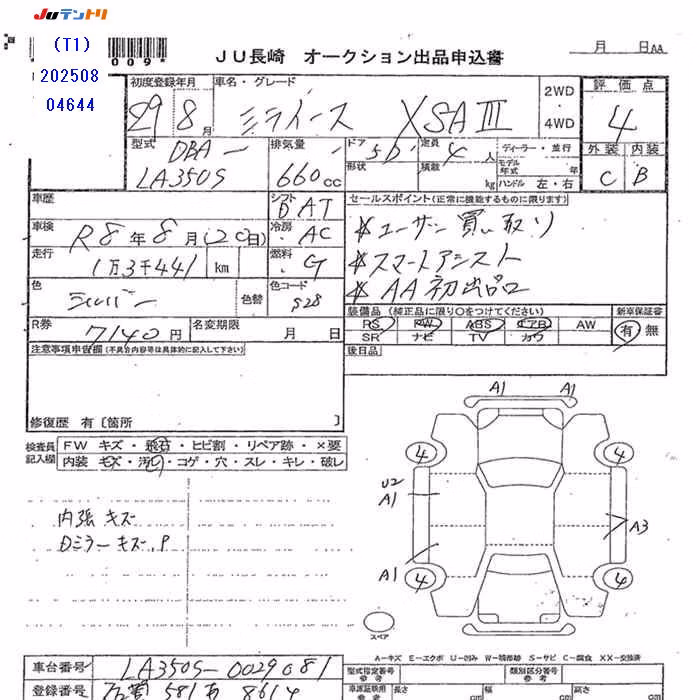 JUテントリ
(T1)
202508
04644
009
月 日 AA
JU長崎 オークション出品申込書
初度登録年月 車名・グレード 2WD・4WD 評価点
29年 8月 ミライース XSAⅢ 4
型式 DBA- 排気量 ドア 5D 定員 4人 ディーラー・並行 外装 内装
LA350S 660cc 形状 積載 kg モデル年式 年 C B
ハンドル 左・右
車歴 シフト DAT セールスポイント(正常に機能するものに限ります)
車検 R8年8月(20日) 冷房 AC ＊ユーザー買い取り
走行 1万3千441 km 燃料 G ＊スマートアシスト
色 シルバー 色替 色コード S28 ＊AA初出品
装備品 (純正品に限り○をつけてください) 新車保証書
R券 7140円 名変期限 月 日 PS PW ABS エアB AW 有 無
SR ナビ TV カワ
注意事項申告欄(不具合内容等は具体的に記入して下さい) 後日品
修復歴 有〔箇所 〕
検査員記入欄 FW キズ・飛石・ヒビ割・リペア跡・×要
内装 キズ・汚レ・コゲ・穴・スレ・キレ・破レ
A1 A1
4 4
U2
A1
A3
内張キズ
Dミラーキズ、P
A1 4 4
スペア
A－キズ E－エクボ U－凹み W－補修跡 S－サビ C－腐食 XX－交換済
車台番号 LA350S-0029081 型式指定番号 類別区分番号
登録番号 佐賀 581 あ 8614 車庫証明用参考 長さ cm 幅 cm 高さ cm